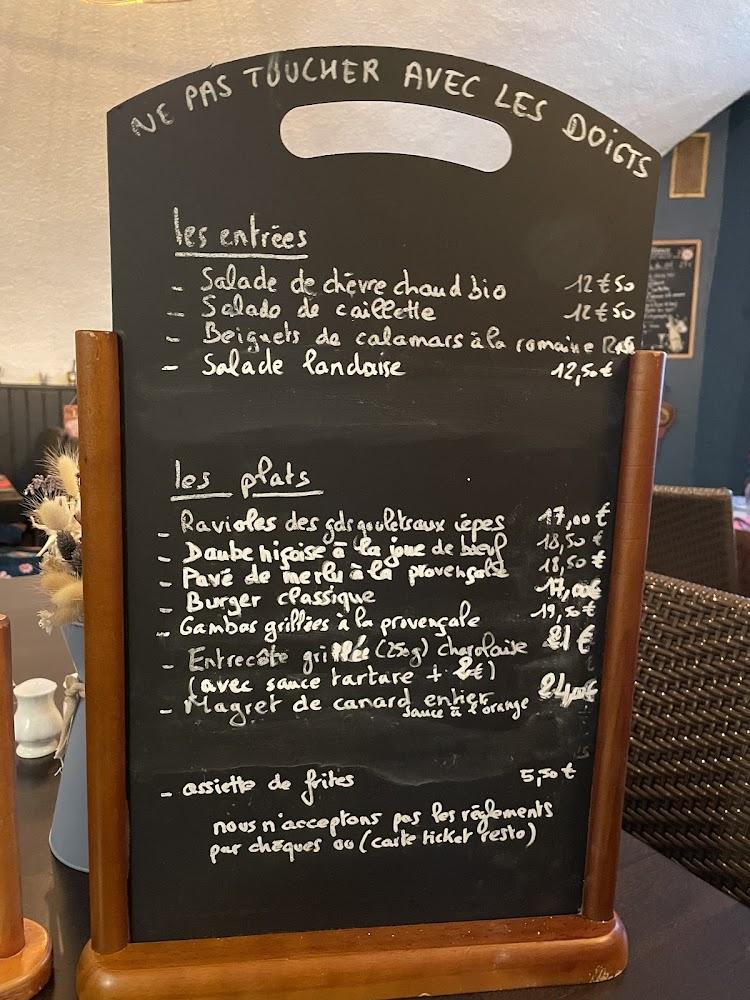 NE PAS TOUCHER AVEC LES DOIGTS
les entrées
- Salade de chèvre chaud bio 12€50
- Salade de caillette 12€50
- Beignets de calamars à la romaine
- Salade landaise 12,50€
les plats
- Ravioles des gds goulets aux cèpes 17,00€
- Daube niçoise à la joue de bœuf 18,50€
- Pavé de merlu à la provençale 18,50€
- Burger classique 17,00€
- Gambas grillées à la provençale 19,50€
- Entrecôte grillée (250g) charolaise 21€
(avec sauce tartare + 2€)
- Magret de canard entier
sauce à l'orange
- assiette de frites 5,50€
nous n'acceptons pas les règlements
par chèques ou (carte ticket resto)